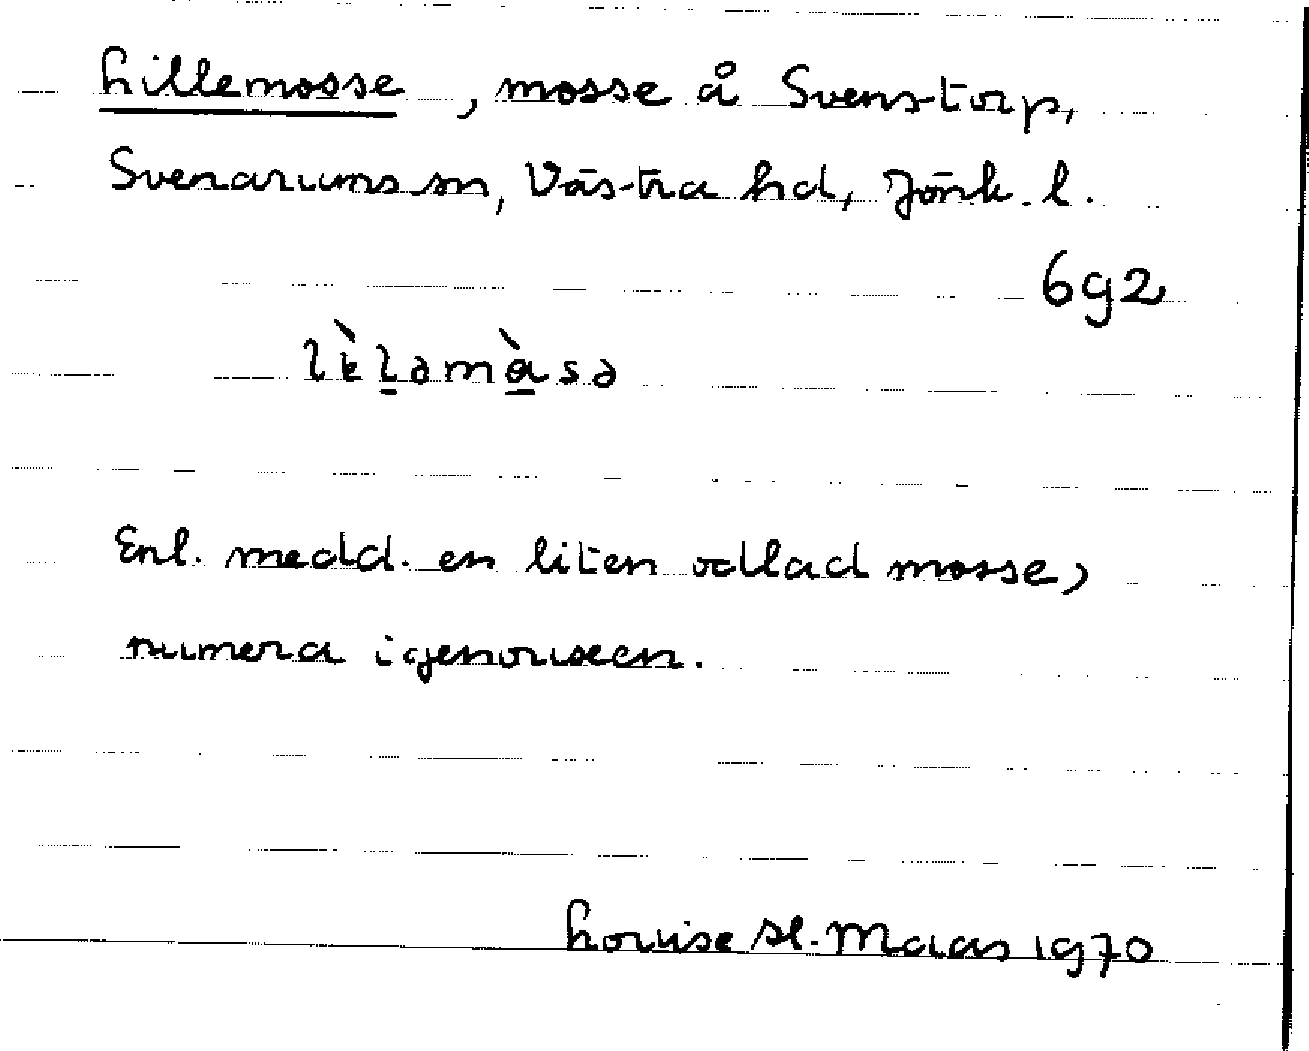 Lillemosse, mosse å Svenstorp,
Svenarums sn, Västra hd, Jönk. l.
6g2
lèlamàsə
Enl. medd. en liten odlad mosse,
numera igenvuxen.
Louise St. Maas 1970